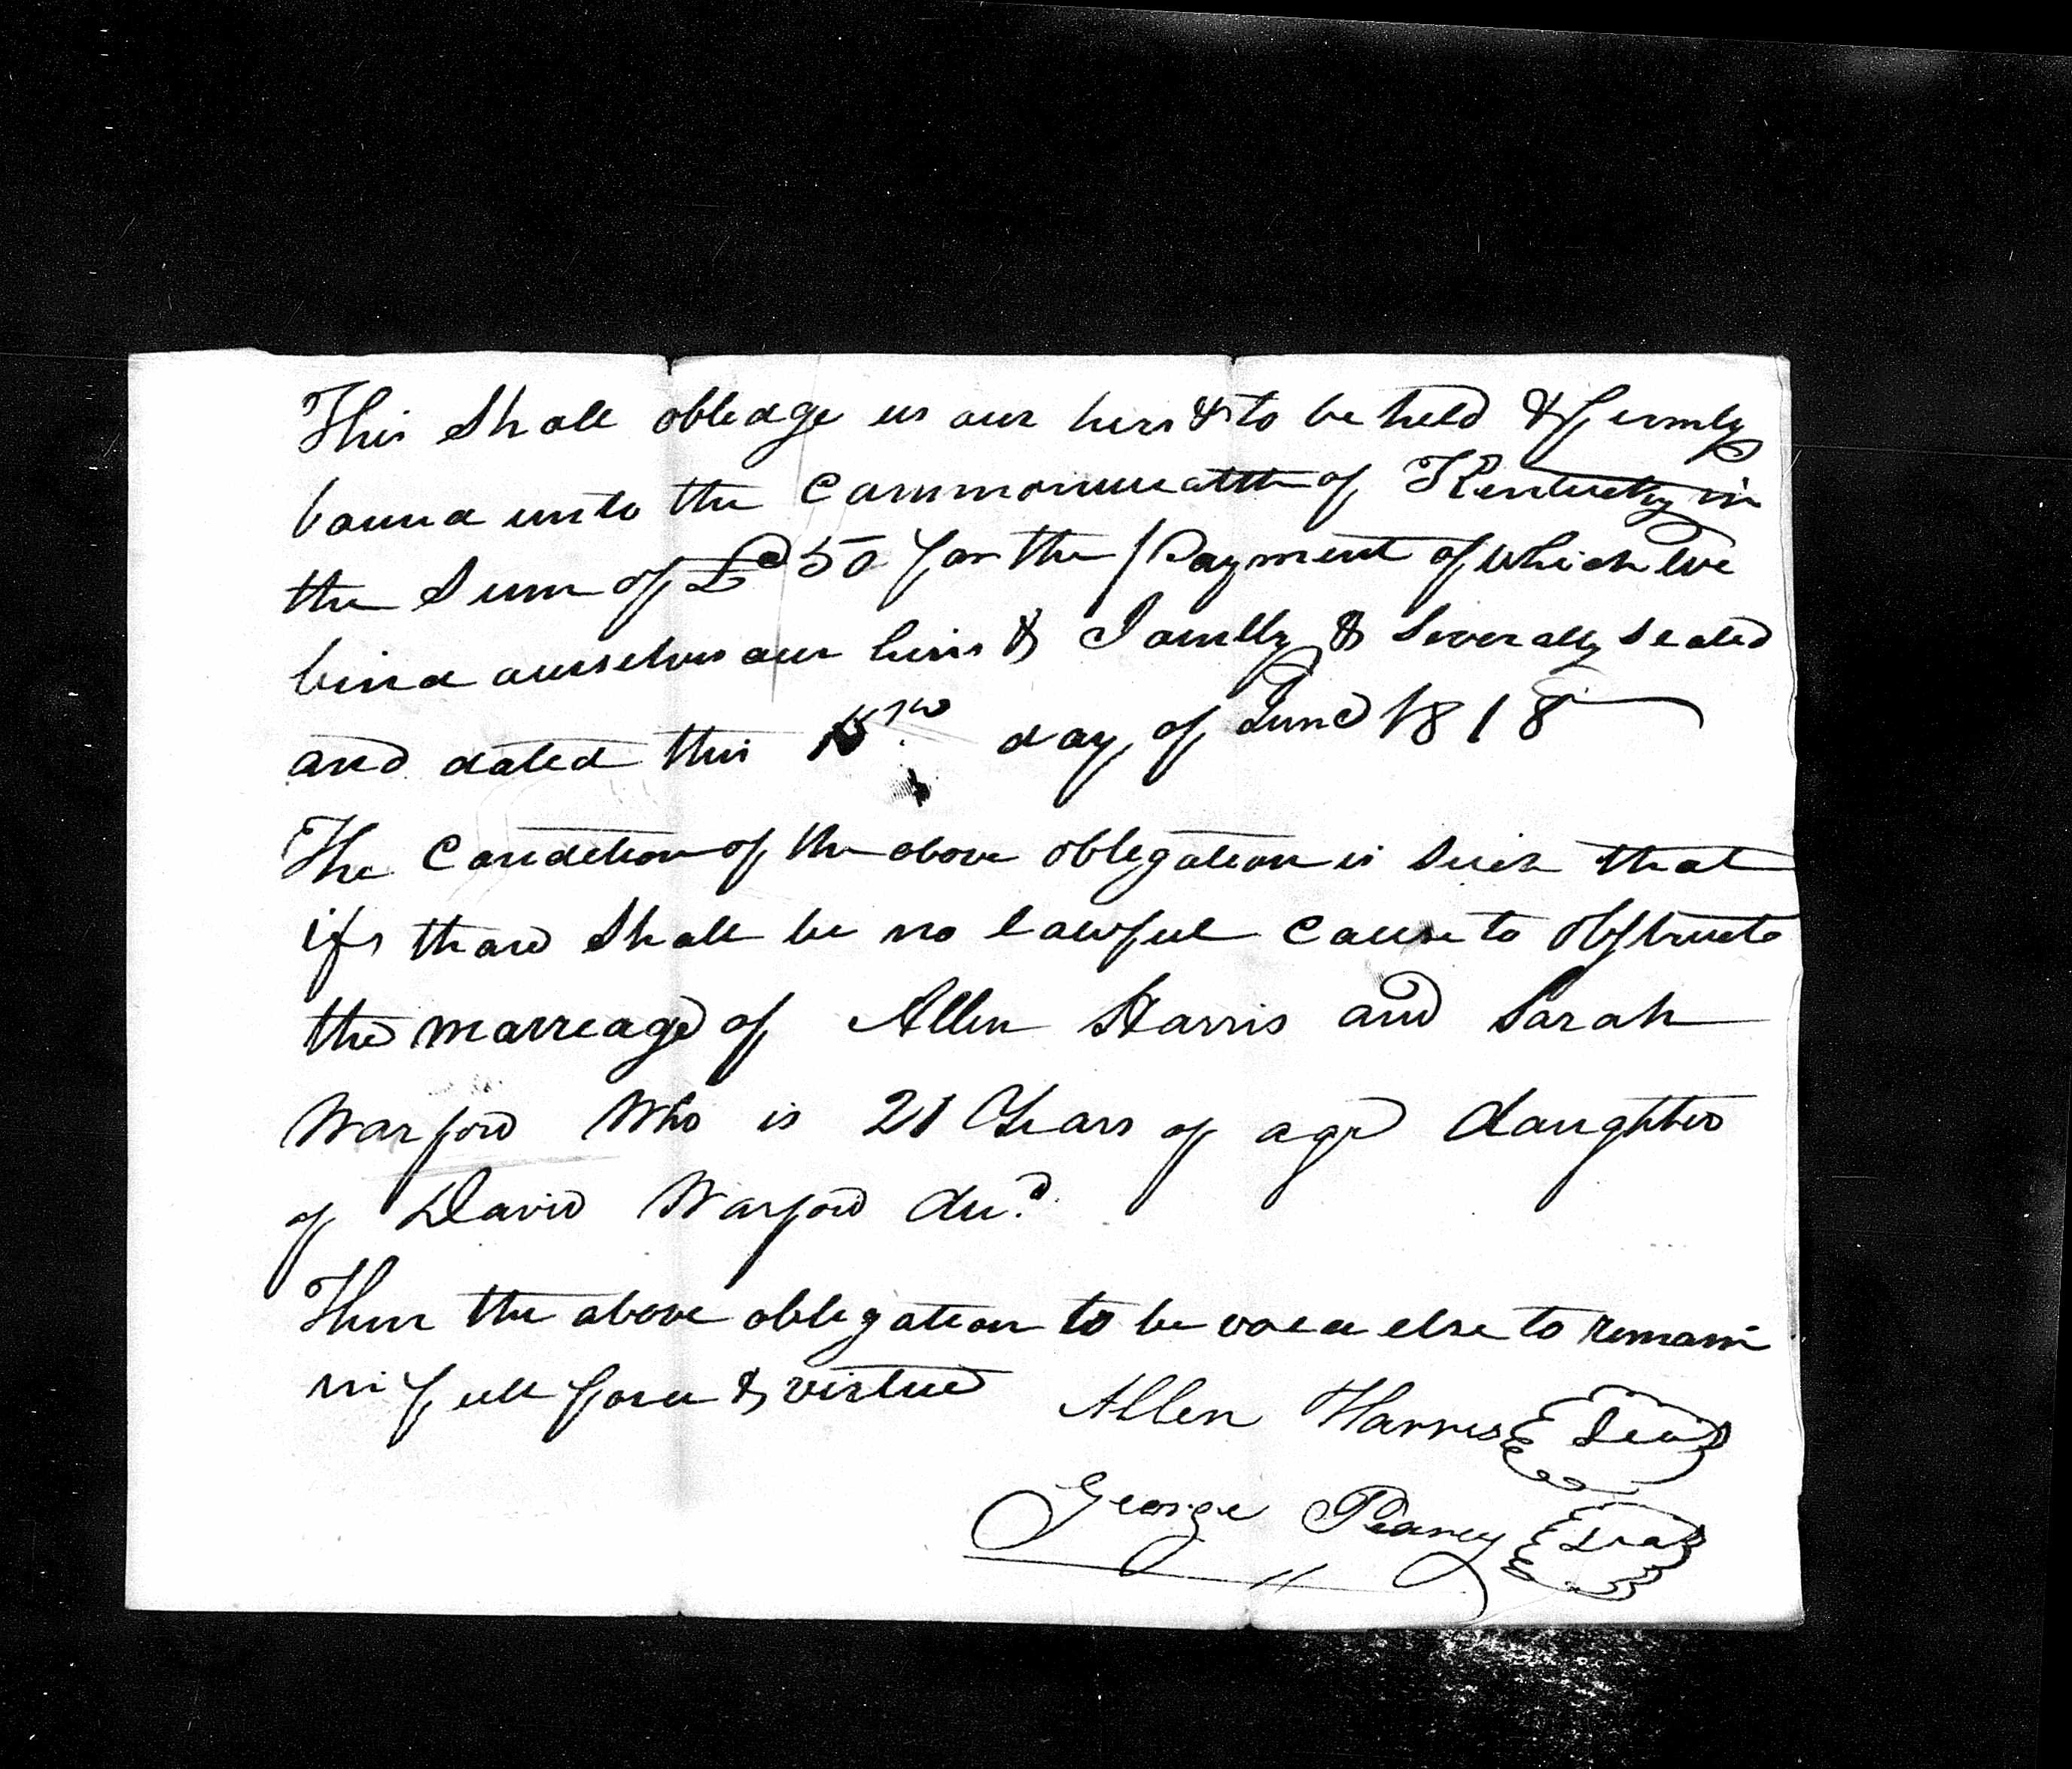 This Shall obledge us our heirs & to be held & firmly
bound unto the Commonwealth of Kentucky in
the Sum of £ 50 for the Payment of which we
bind ourselves our heirs & Jointly & Severally sealed
and dated this day of June 1818
The Condition of the above obligation is such that
if thare Shall be no lawful cause to obstruct
the marreage of Allen Harris and Sarah
Warford Who is 21 Years of age daughter
of David Warford decd.
Then the above obligation to be void else to remain
in full force & virtue Allen Harris Seal
George Pearcy Seal